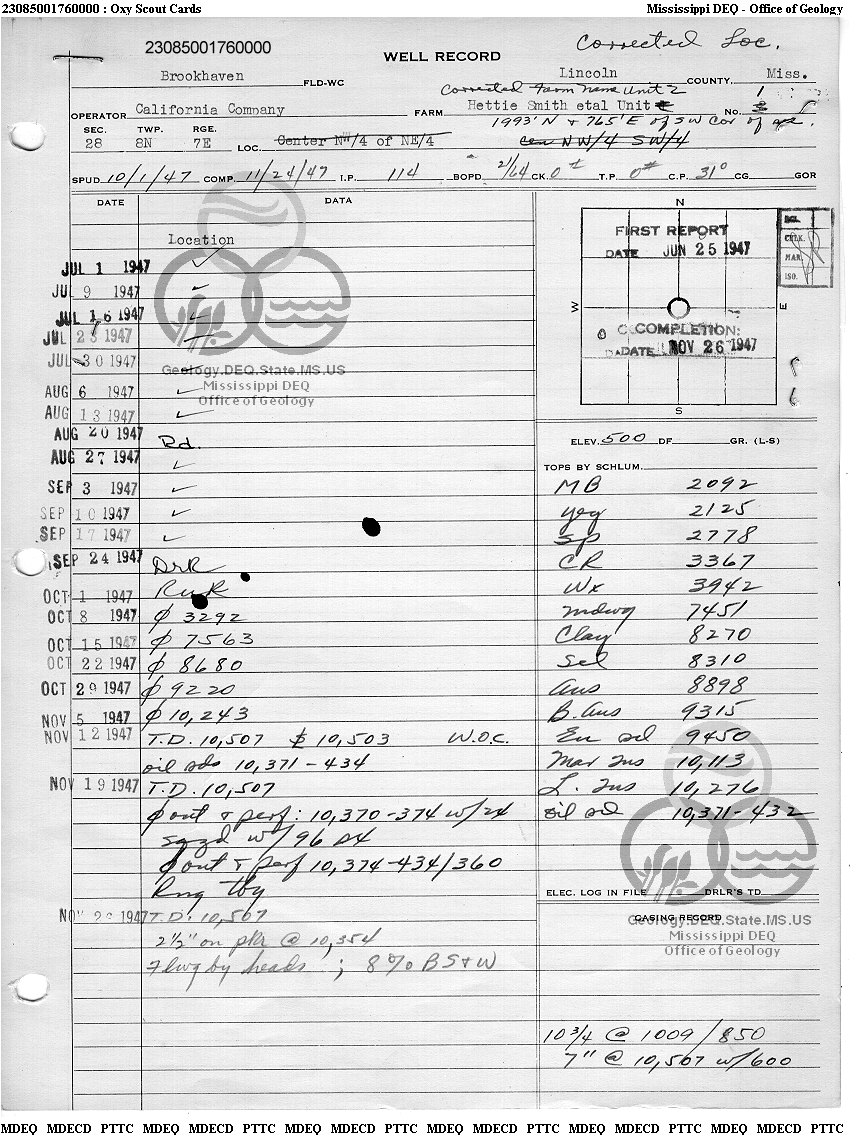 23085001760000 : Oxy Scout Cards
Mississippi DEQ - Office of Geology
23085001760000
Corrected Loc.
WELL RECORD
Brookhaven FLD-WC Lincoln COUNTY, Miss.
Corrected Farm Name Unit 2 1
OPERATOR California Company FARM Hettie Smith etal Unit No.
1993' N & 765' E of SW Cor of
SEC. TWP. RGE.
28 8N 7E LOC. Center N /4 of NE/4 Cen NW/4 SW/4
SPUD 10/1/47 COMP. 11/24/47 I.P. 114 BOPD 21/64 CK. 0# T.P. 0# C.P. 31° CG GOR
DATE DATA
Location
JUL 1 1947 ✓
JUL 9 1947 ✓
JUL 16 1947 ✓
JUL 23 1947 ✓
JUL 30 1947
AUG 6 1947 ✓
AUG 13 1947 ✓
AUG 20 1947 Rd.
AUG 27 1947 ✓
SEP 3 1947 ✓
SEP 10 1947 ✓
SEP 17 1947 ✓
SEP 24 1947 DrR
OCT 1 1947 RuR
OCT 8 1947 ϕ 3292
OCT 15 1947 ϕ 7563
OCT 22 1947 ϕ 8680
OCT 29 1947 ϕ 9220
NOV 5 1947 ϕ 10,243
NOV 12 1947 T.D. 10,507 10,503 W.O.C.
oil sds 10,371-434
NOV 19 1947 T.D. 10,507
ϕ out & perf: 10,370-374 w/24
sqzd w/ 96 sx
ϕ out & perf 10,374-434/360
Rng tby
NOV 26 1947 T.D. 10,507
2½" on pkr @ 10,354
Flwg by heads ; 8% BS & W
Geology.DEQ.State.MS.US
Mississippi DEQ
Office of Geology
N
W
E
S
FIRST REPORT
DATE JUN 25 1947
COMPLETION:
DATE NOV 26 1947
MAR.
ISO.
ELEV. 500 DF. GR. (L-S)
TOPS BY SCHLUM.
MB 2092
yeg 2125
sp 2778
CR 3367
Wx 3942
mdwg 7451
Clay 8270
Sel 8310
Aus 8898
B. Aus 9315
Eu sd 9450
Mar Tus 10,113
L. Tus 10,276
oil sd 10,371-432
ELEC. LOG IN FILE DRLR'S TD
CASING RECORD
Geology.DEQ.State.MS.US
Mississippi DEQ
Office of Geology
10 3/4 @ 1009/850
7" @ 10,507 w/600
MDEQ MDECD PTTC MDEQ MDECD PTTC MDEQ MDECD PTTC MDEQ MDECD PTTC MDEQ MDECD PTTC MDEQ MDECD PTTC